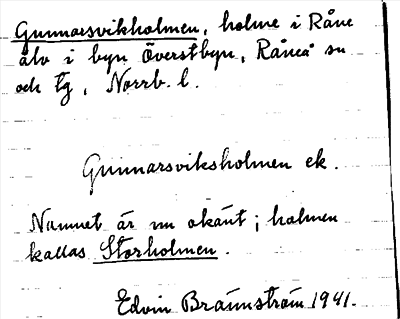 Gunnarsvikholmen, holme i Råne
älv i byn Överstbyn, Råneå sn
och tg, Norrb. l.
Gunnarsviksholmen ek.
Namnet är nu okänt; holmen
kallas Storholmen.
Edvin Brännström 1941.